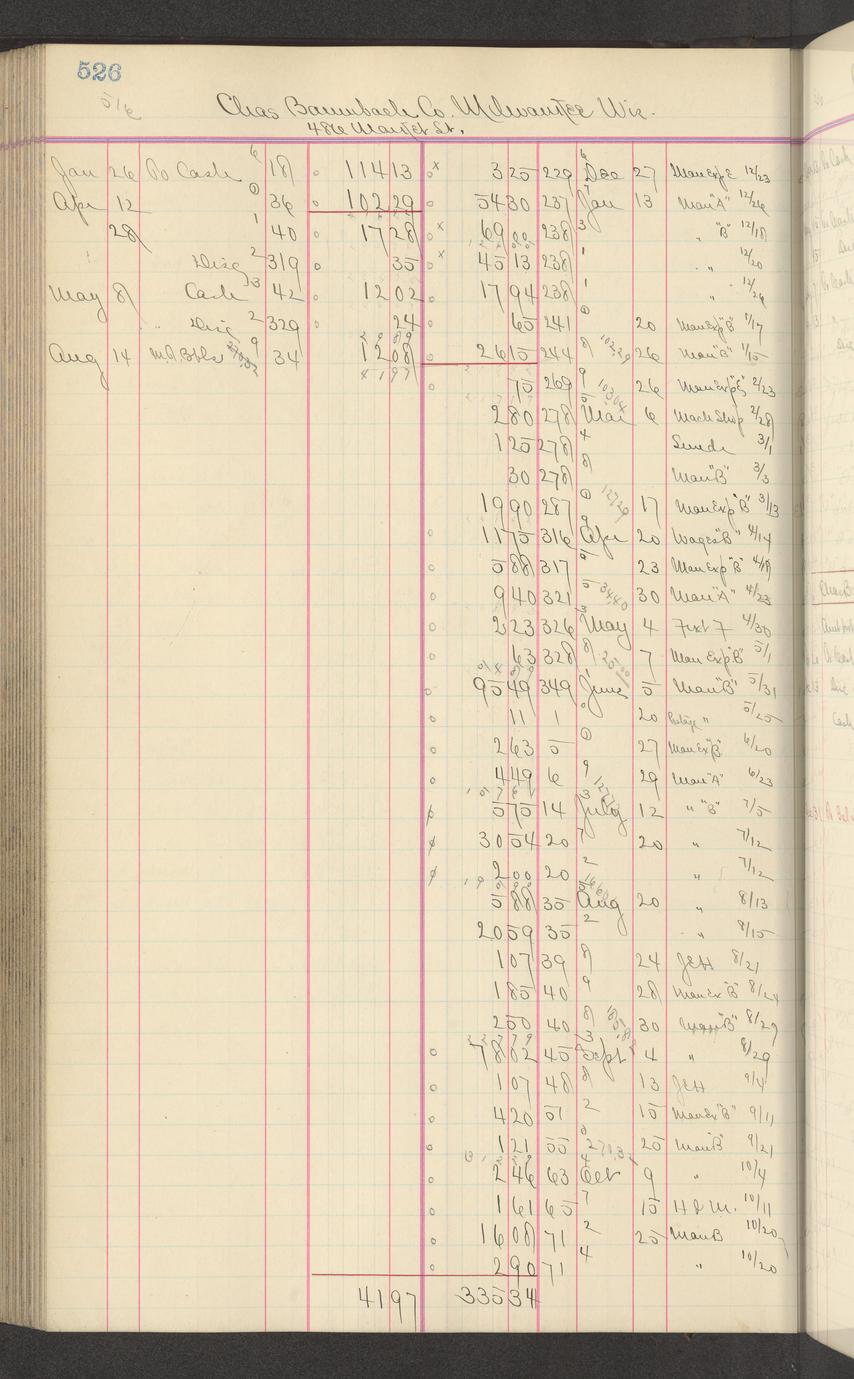 526
516
Chas Baumbach Co. Milwaukee Wis.
486 Market St.
Jan 26 To Cash 6 18 114 13 x 3 25 229 6 Dec 27 Man Exp E 12/23
Apr 12 0 36 102 29 54 30 237 7 Jan 13 Man "A" 12/26
28 1 40 17 28 x 69 00 238 3 " "B" 12/18
Disc 2 319 35 x 45 13 238 1 " 12/20
May 8 Cash 3 42 12 02 17 94 238 1 " 12/26
" Disc 2 329 24 65 241 0 20 Man Exp "B" 1/17
Aug 14 9 34 12 08 26 15 244 8 26 Man "B" 1/15
41 97
75 269 9 26 Man Exp "E" 2/23
2 80 278 5 Mar 6 Mach Shop 2/28
1 25 278 4 Sunds 3/1
30 278 8 Man "B" 3/3
19 90 287 0 17 Man Exp "B" 3/13
11 75 316 9 Apr 20 Wages "B" 4/14
5 88 317 23 Man Exp "B" 4/18
9 40 321 5 34.40 30 Man "A" 4/23
2 23 326 3 May 4 Frt 7 4/30
63 328 8 7 Man Exp "B" 5/1
95 49 349 June 5 Man "B" 5/31
11 1 20 Postage " 5/25
2 63 5 0 27 Man Ex "B" 6/20
4 49 6 9 29 Man "A" 6/23
5 75 14 3 July 12 " "B" 7/5
30 54 20 7 20 " 7/12
2 00 20 2 " 7/12
5 88 35 Aug 20 " 8/13
20 59 35 2 " 8/15
1 07 39 8 24 JEH 8/21
1 85 40 9 28 Man Ex "B" 8/24
2 50 40 8 30 Man "B" 8/29
78 02 45 Sept 4 " 8/29
1 07 48 8 13 JEH 9/4
4 20 51 2 15 Man Ex "B" 9/11
1 21 55 0 25 Man B 9/21
2 46 63 4 Oct 9 " 10/4
1 61 65 7 15 H & M. 10/11
16 08 71 2 25 Man B 10/20
2 90 71 4 " 10/20
41 97 335 34